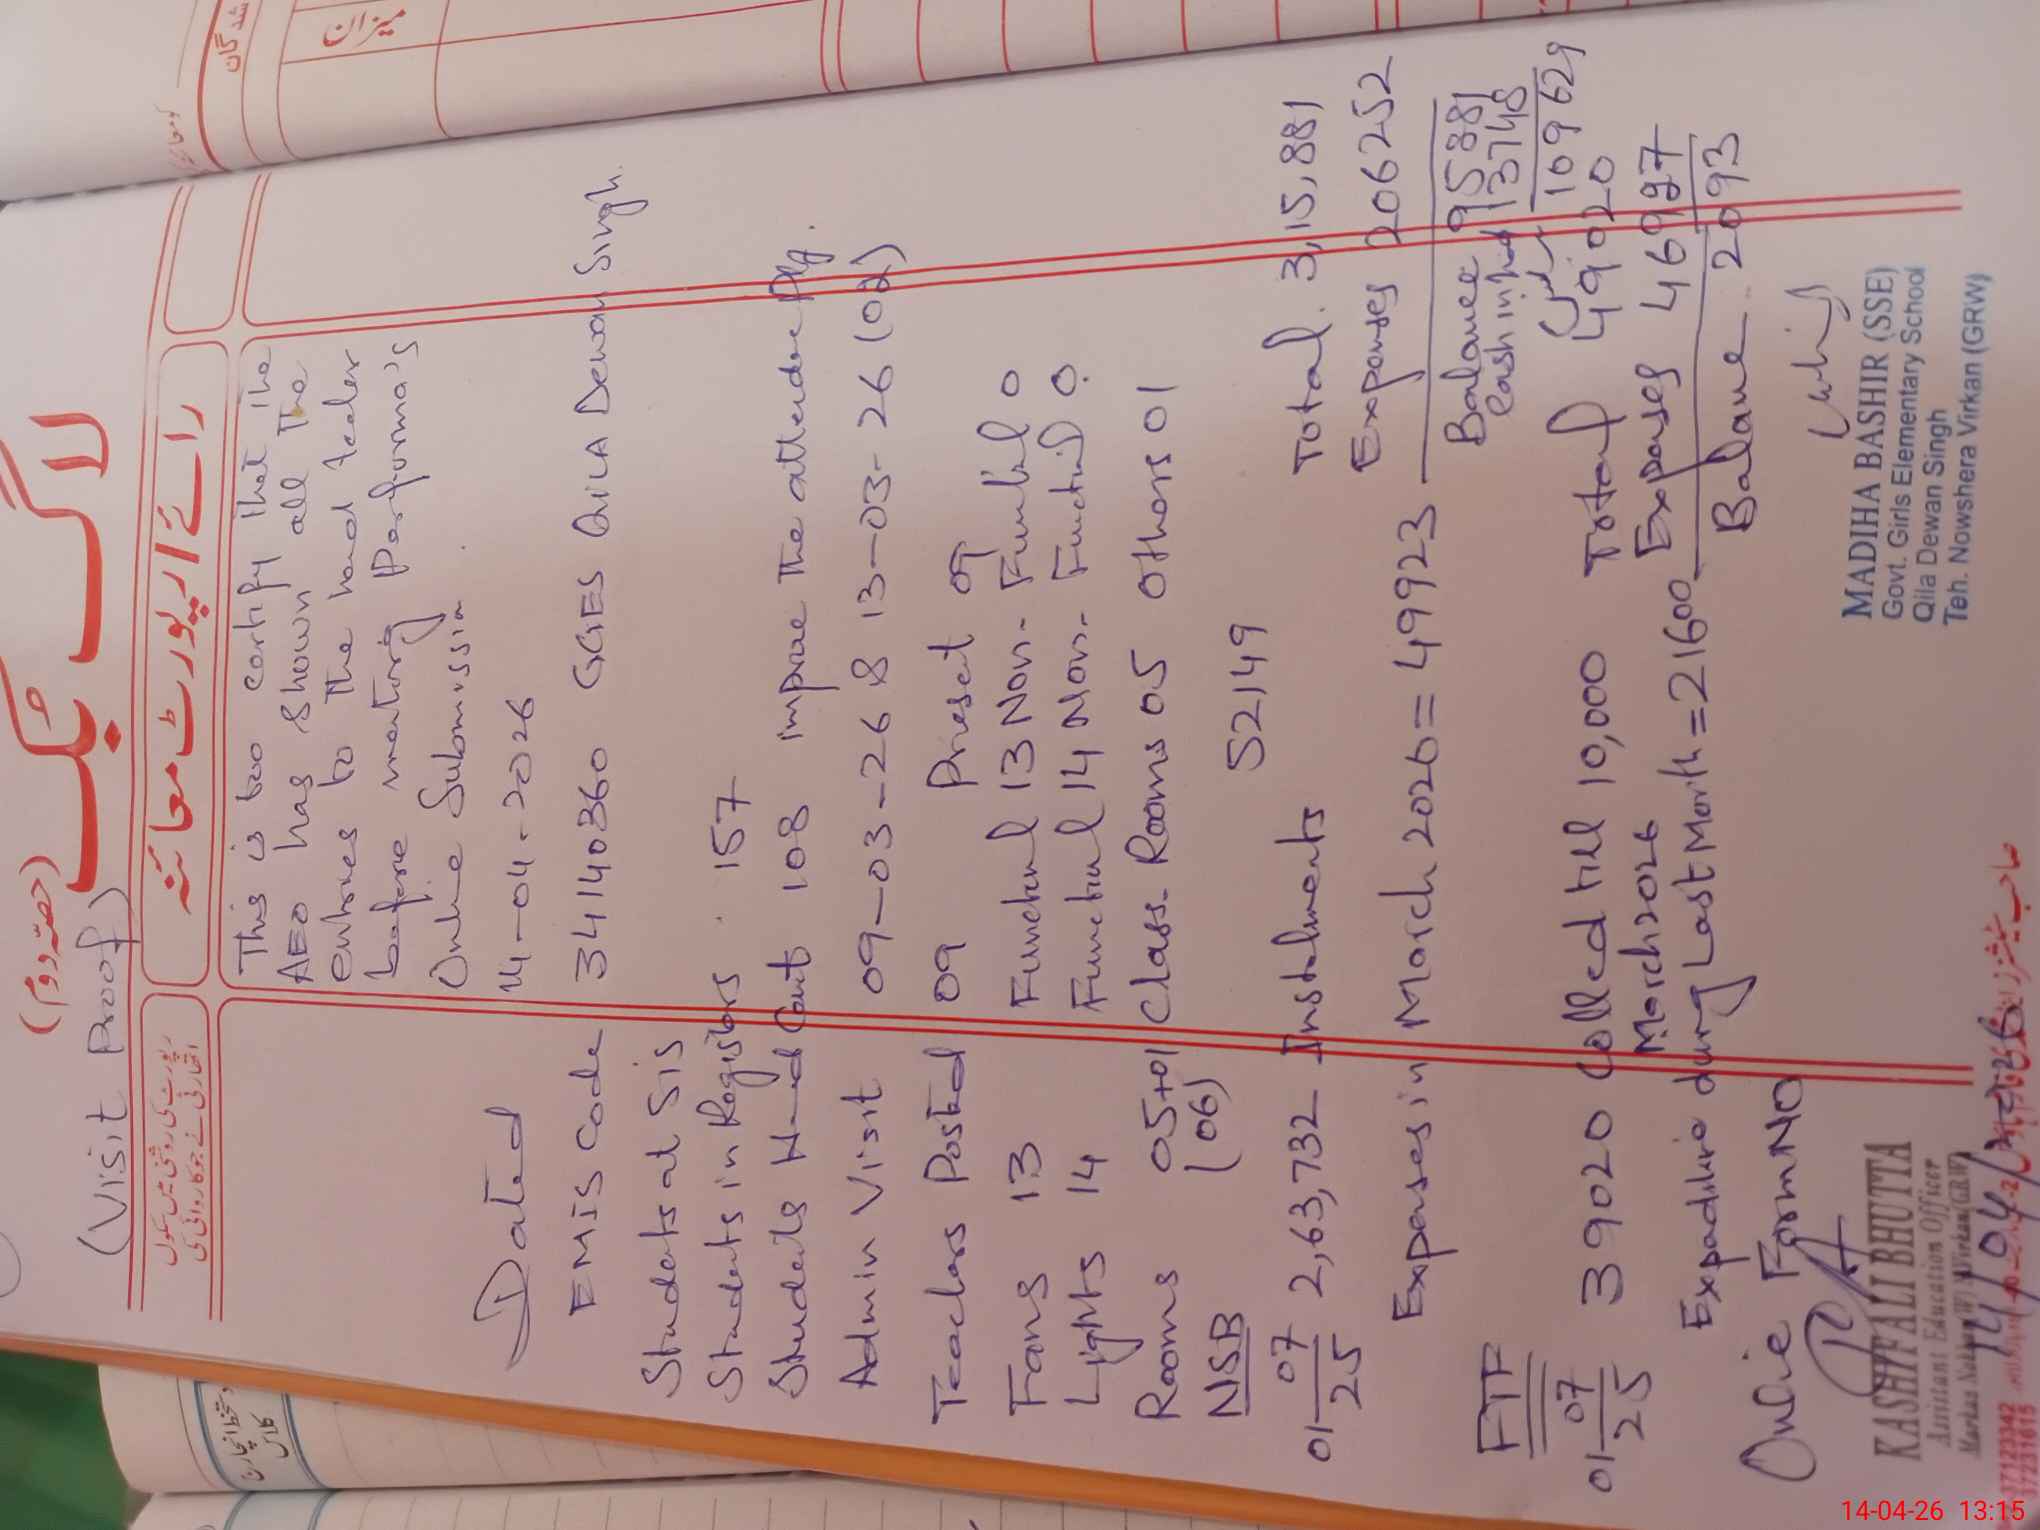 (حصہ دوم)
لاگ بُک
(Visit Proof)
رائے / رپورٹ معائنہ
This is too certify that the
AEO has shown all The
entries to the head teacher
before meeting Performa's
Online Submission.
Dated 14-04-2026
EMIS Code 34140360 GGES QILA Dewan Singh.
Students at SIS
Students in Registers . 157
Students Head Count 108 improve The attendance Plz.
Admin Visit 09-03-26 & 13-03-26 (02)
Teachers Posted 09 Present 09
Fans 13 Functional 13 Non-Functional 0
Lights 14 Functional 14 Non-Functional 0.
Rooms 05+01 (06) Class Rooms 05 Others 01
NSB 52149
01-07-25 2,63,732 Instalments Total. 3,15,881
Expenses 206252
Expenses in March 2026 = 49923
Balance 95881
Cash in hand 13748
109629
FTF
01-07-25 39020 Collected till 10,000 Total 49020
March 2026 Expenses 46927
Expenditure during Last Month = 21600
Balance 2093
Online Form NO
KASHIF ALI BHUTTA
Assistant Education Officer
14/04/2026
MADIHA BASHIR (SSE)
Govt. Girls Elementary School
Qila Dewan Singh
Teh. Nowshera Virkan (GRW)
میزان
شدگان
14-04-26 13:15